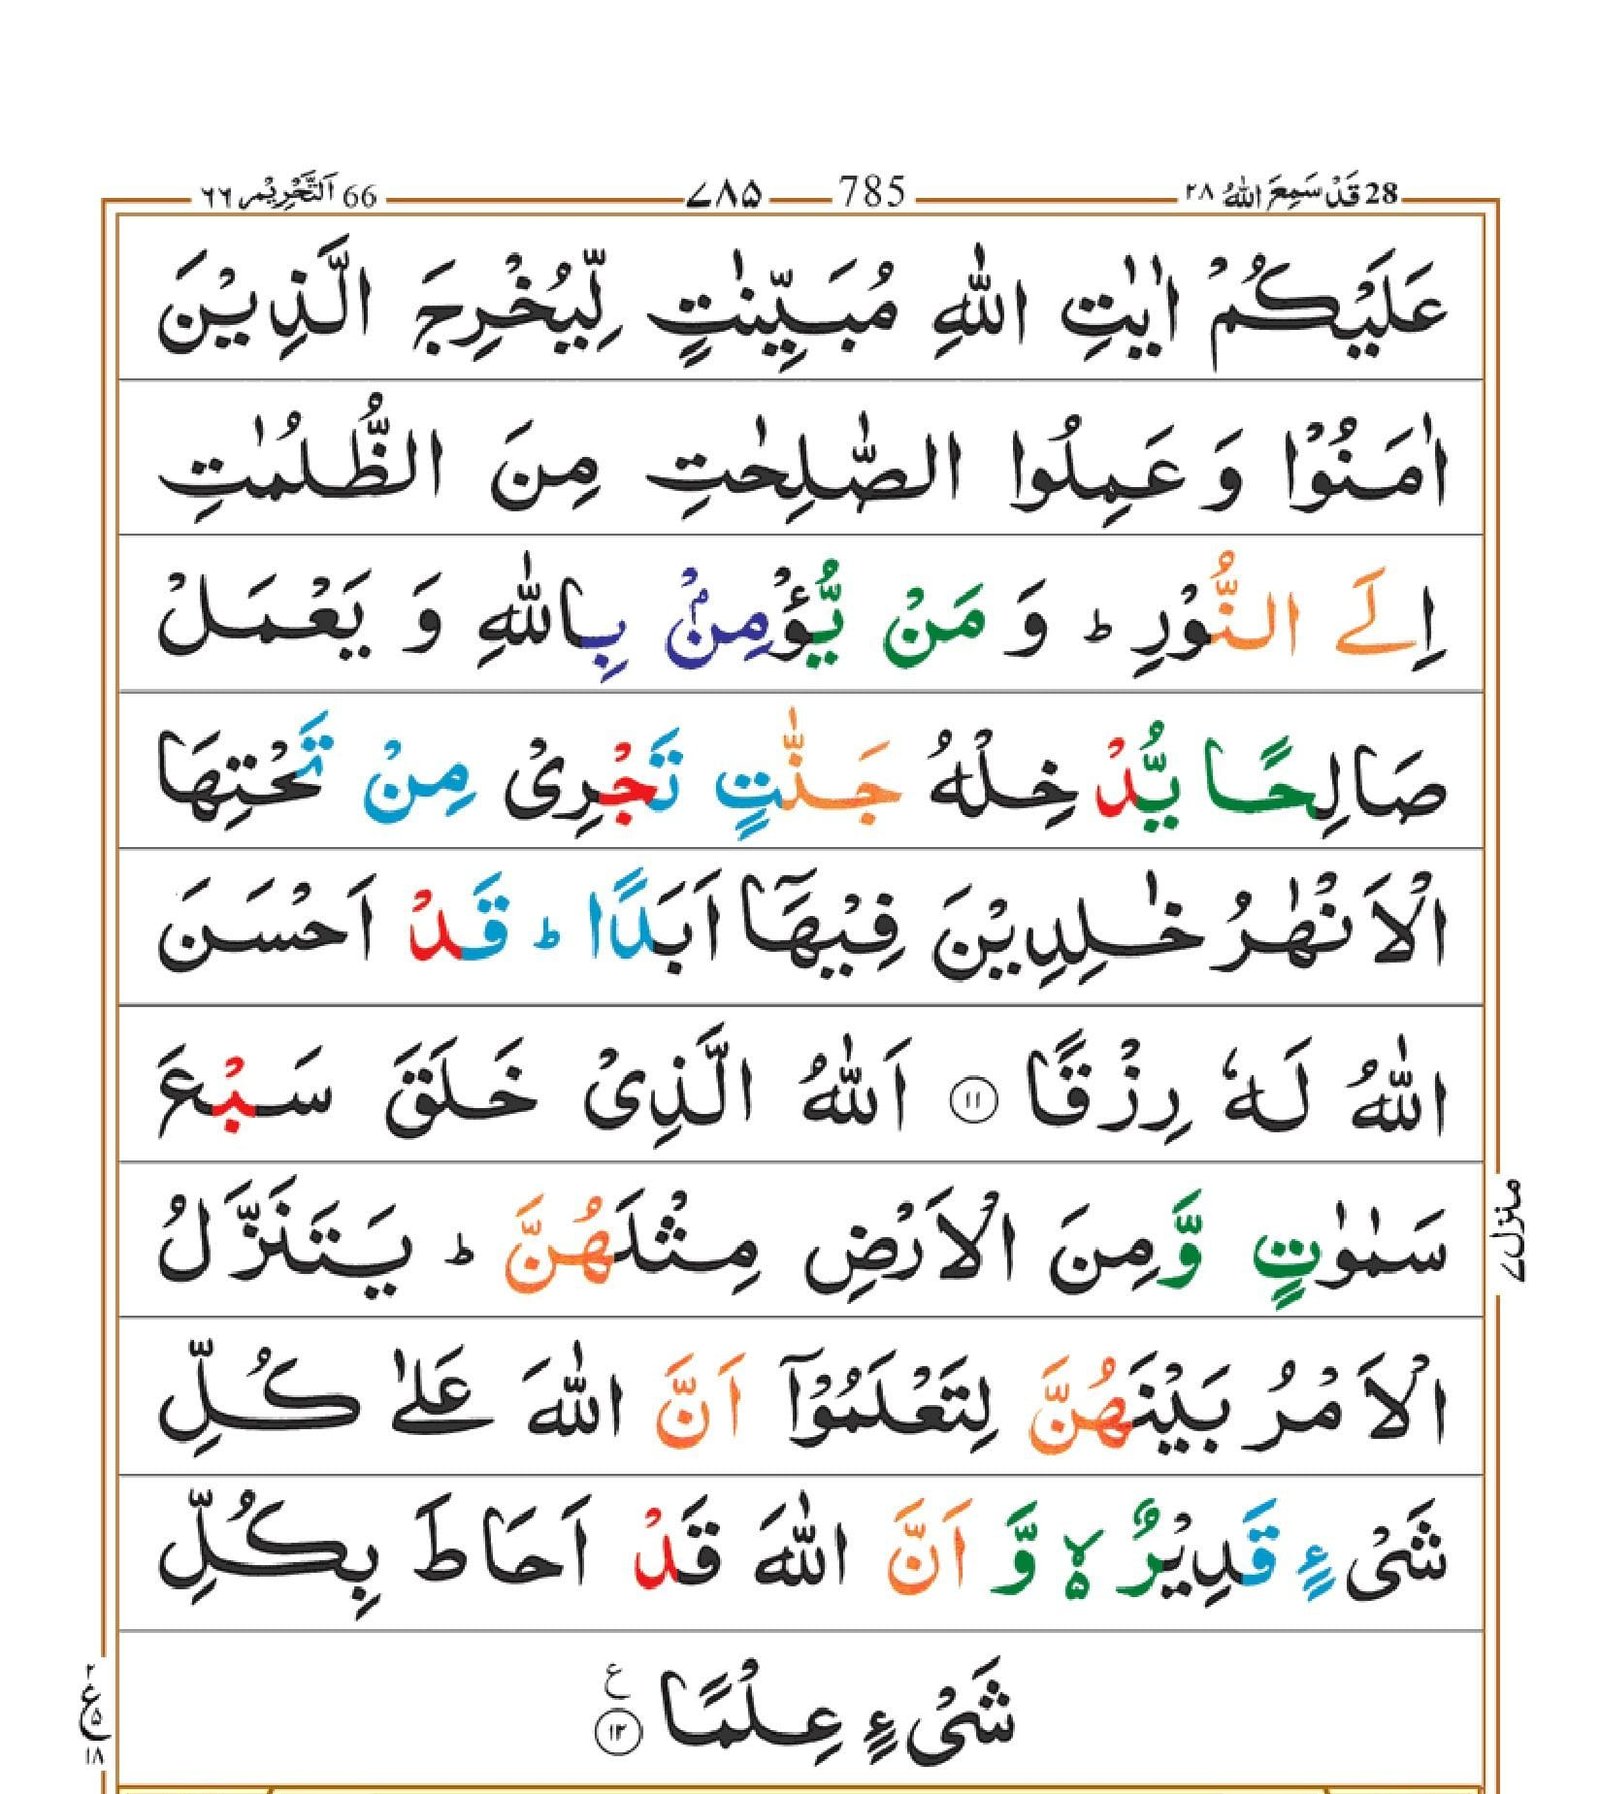 28 قَدْ سَمِعَ اللّٰهُ ٢٨
785 ۷۸۵
66 اَلتَّحْرِيْم ٦٦
عَلَيْكُمْ اٰيٰتِ اللّٰهِ مُبَيِّنٰتٍ لِّيُخْرِجَ الَّذِيْنَ
اٰمَنُوْا وَ عَمِلُوا الصّٰلِحٰتِ مِنَ الظُّلُمٰتِ
اِلَى النُّوْرِ ؕ وَ مَنْ يُّؤْمِنْۢ بِاللّٰهِ وَ يَعْمَلْ
صَالِحًا يُّدْخِلْهُ جَنّٰتٍ تَجْرِىْ مِنْ تَحْتِهَا
الْاَنْهٰرُ خٰلِدِيْنَ فِيْهَاۤ اَبَدًا ؕ قَدْ اَحْسَنَ
اللّٰهُ لَهٗ رِزْقًا ۱۱ اَللّٰهُ الَّذِىْ خَلَقَ سَبْعَ
سَمٰوٰتٍ وَّمِنَ الْاَرْضِ مِثْلَهُنَّ ؕ يَتَنَزَّلُ
الْاَمْرُ بَيْنَهُنَّ لِتَعْلَمُوْۤا اَنَّ اللّٰهَ عَلٰى كُلِّ
شَىْءٍ قَدِيْرٌ ۙ۬ وَّ اَنَّ اللّٰهَ قَدْ اَحَاطَ بِكُلِّ
شَىْءٍ عِلْمًا ۱۲ ع
منزل ۷
٢
ع
۵
١٨